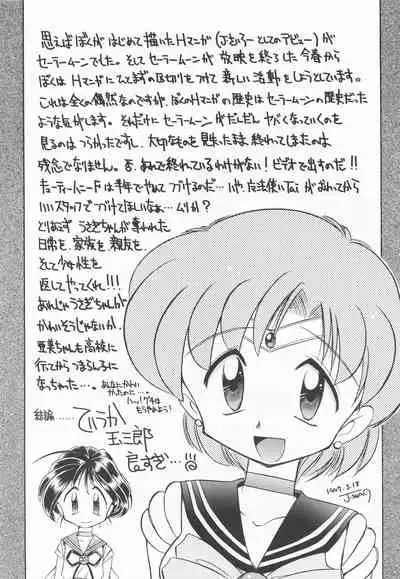 思えばぼくが はじめて描いたHマンガ (Jさいろーとしてのデビュー) が
セーラームーンでした。そしてセーラームーンが 放映を終了した今春から
ぼくはHマンガにひとまず区切りをつけて 新しい活動をしようとしています。
これは全くの偶然なのですが、ぼくのHマンガの歴史はセーラームーンの歴史だった
ような気がします。それだけにセーラームーンがだんだんヤバくなっていくのを
見るのはつらかったですし、大切なものを見失ったまま終わってしまったのは
残念でなりません。 あれで終われているわけがない! ビデオで出すのだ!!
キューティーハニーFは半年でやめてつづけるのだ…いや、魔法使いTaiがおわってから
いいスタッフでつづけてほしいなぁ…ムリか?
とりあえず うさぎちゃんが奪われた
日常を、家族を、親友を、
そして少女性を
返してやってくれ!!!
あれじゃうさぎちゃんが
かわいそうじゃないか。
亜美ちゃんも高校に
行ってからつまらんくに
なっちゃった…。
あんなにかわいかったのに…。
ハッ!グチはもうやめよう!
結論……
ていうか
玉三郎
長すぎ…
1997.3.18